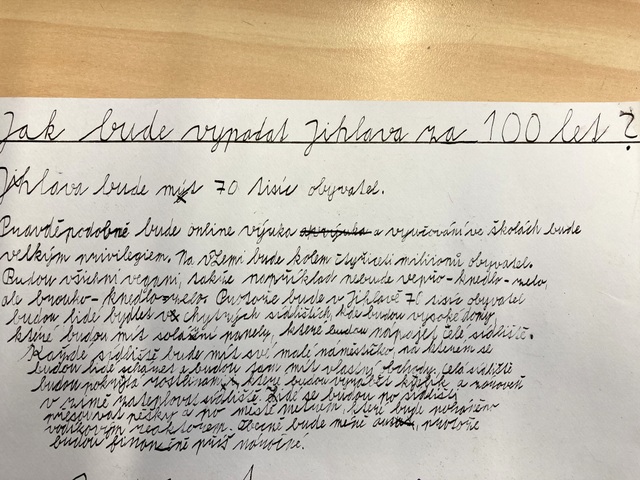 Jak bude vypadat Jihlava za 100 let?
Jihlava bude mít 70 tisíc obyvatel.
Pravděpodobně bude online výuka a vyučování ve školách bude
velkým privilegiem. Na vZemi bude kolem čtyřiceti milionů obyvatel.
Budou všichni vegani, takže například nebude vepřo-knedlo-zelo,
ale brouko-knedlo-zelo. Protože bude v Jihlavě 70 tisíc obyvatel
budou lidé bydlet v chytrých sídlištích, kde budou vysoké domy,
které budou mít solární panely, které budou napájet celé sídliště.
Každé sídliště bude mít své malé náměstíčko, na kterém se
budou lidé scházet a budou tam mít vlastní obchody. Celá sídliště
budou pokrytá rostlinami, které budou vyrábět kyslík a zároveň
v zimě zateplovat sídliště. Lidé se budou po sídlišti
přesouvat pěšky a po městě metrem, které bude poháněno
vodíkovým reaktorem. Obecně bude méně aut, protože
budou finančně příliš náročné.